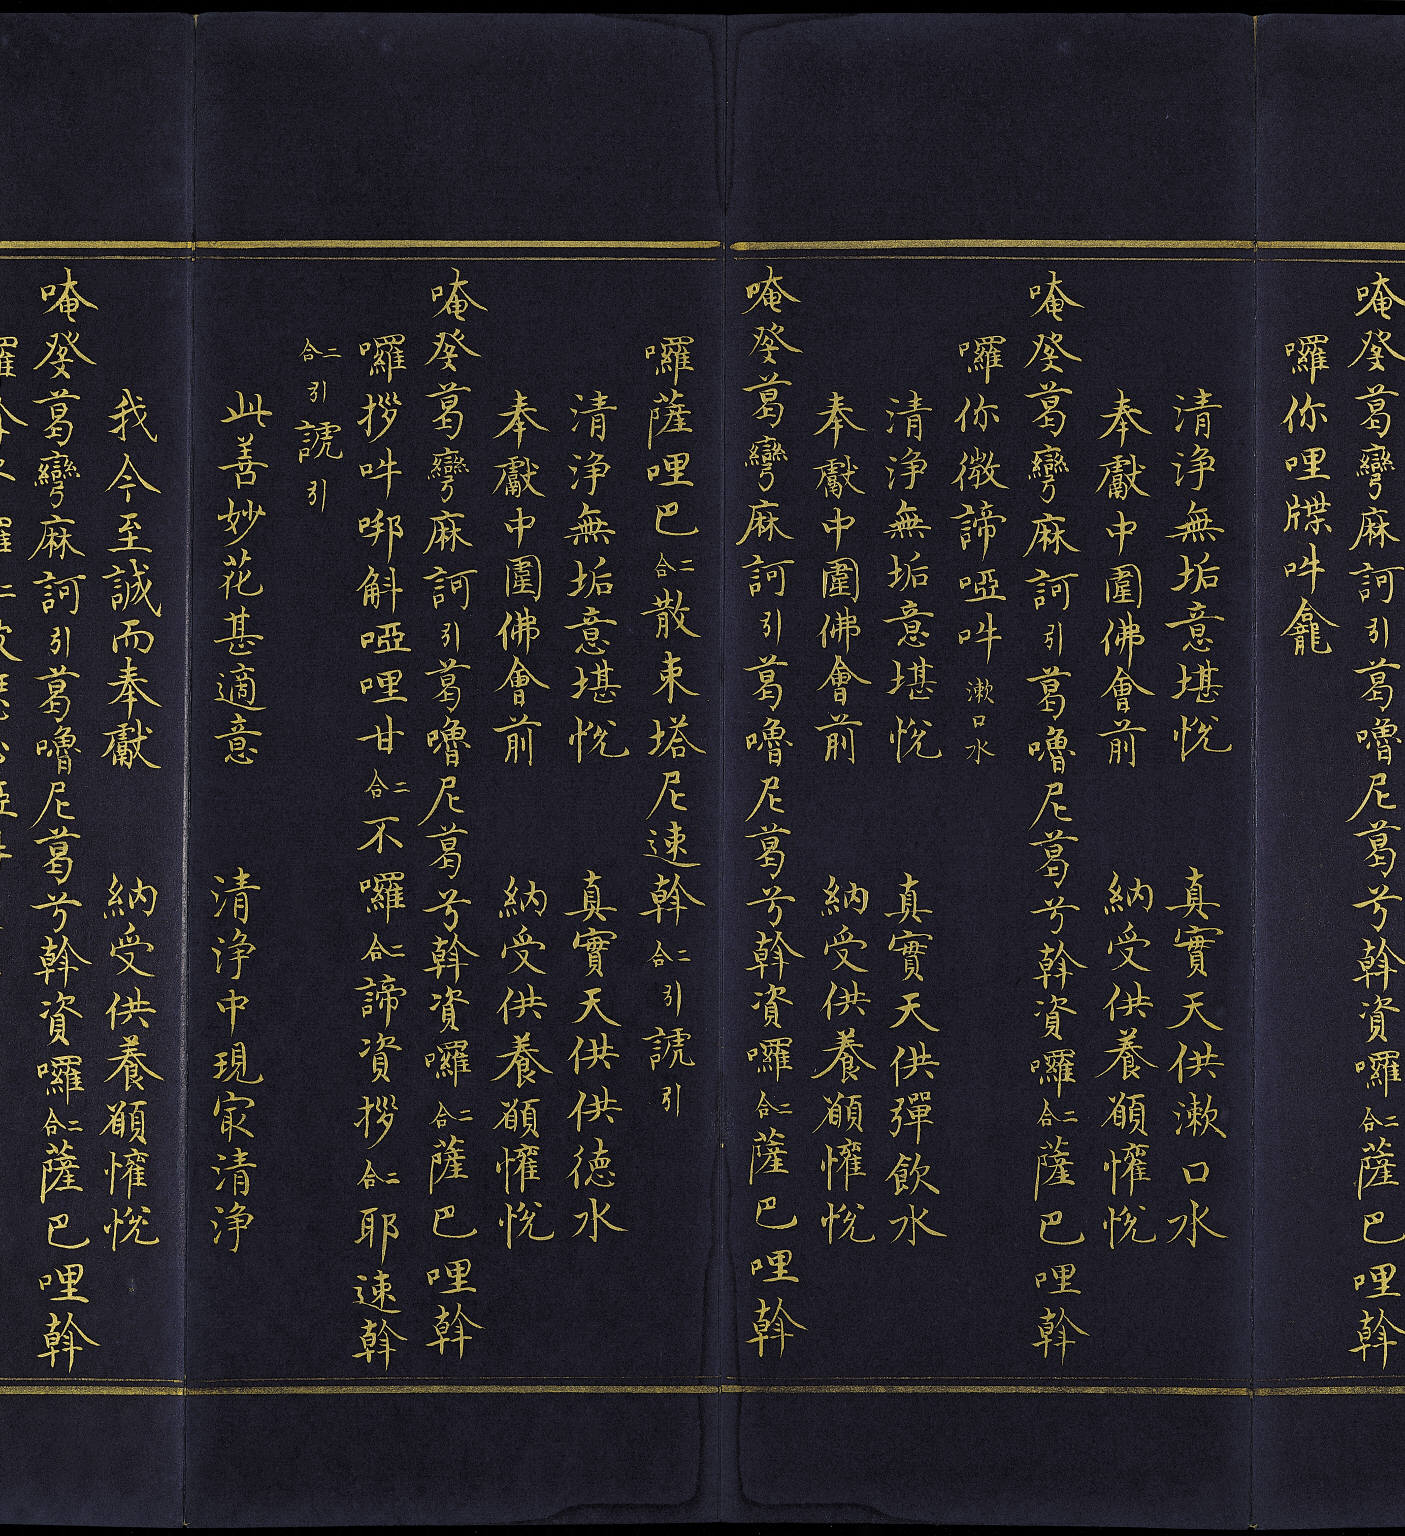 唵癹葛彎麻訶引葛嚕尼葛兮斡資囉二合薩巴哩斡
囉你哩牒吽龕
清淨無垢意堪悅 真實天供漱口水
奉獻中圍佛會前 納受供養願懽悅
唵癹葛彎麻訶引葛嚕尼葛兮斡資囉二合薩巴哩斡
囉你微諦啞吽漱口水
清淨無垢意堪悅 真實天供彈飲水
奉獻中圍佛會前 納受供養願懽悅
唵癹葛彎麻訶引葛嚕尼葛兮斡資囉二合薩巴哩斡
囉薩哩巴二合散束塔尼速斡二合引謕引
清淨無垢意堪悅 真實天供供德水
奉獻中圍佛會前 納受供養願懽悅
唵癹葛彎麻訶引葛嚕尼葛兮斡資囉二合薩巴哩斡
囉拶吽唧斛啞哩甘二合不囉二合諦資拶二合耶速斡
二合引謕引
此善妙花甚適意 清淨中現最清淨
我今至誠而奉獻 納受供養願懽悅
唵癹葛彎麻訶引葛嚕尼葛兮斡資囉二合薩巴哩斡